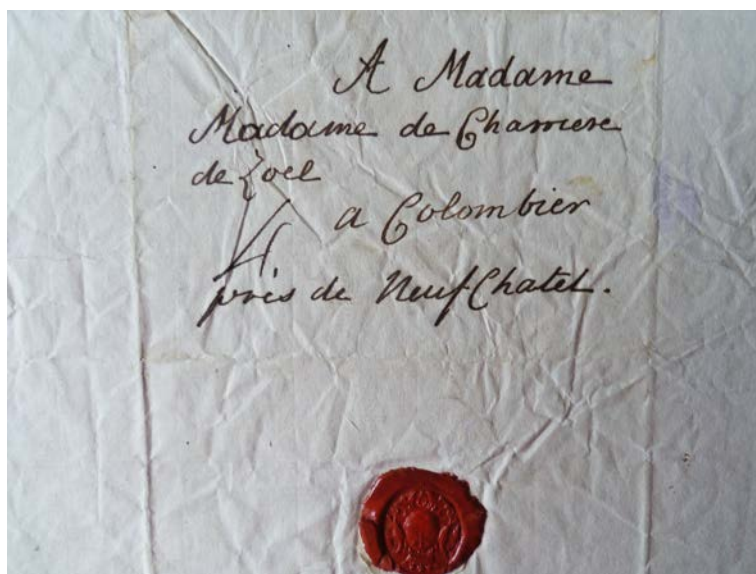 A Madame
Madame de Charriere
de Zoel
a Colombier
près de NeufChatel.